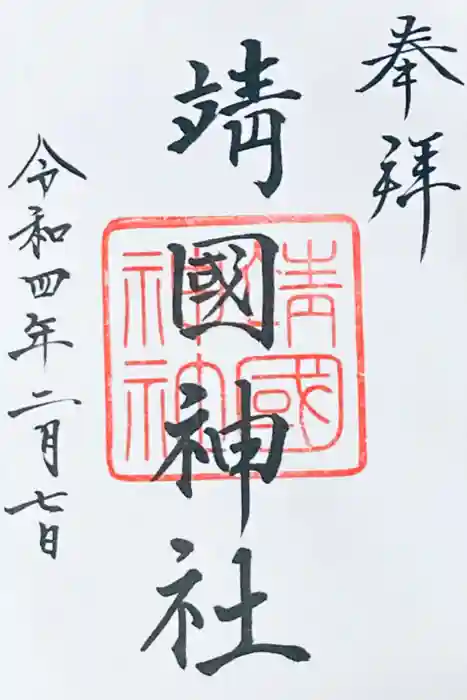 奉拝
靖國神社
令和四年二月七日
靖國
神社